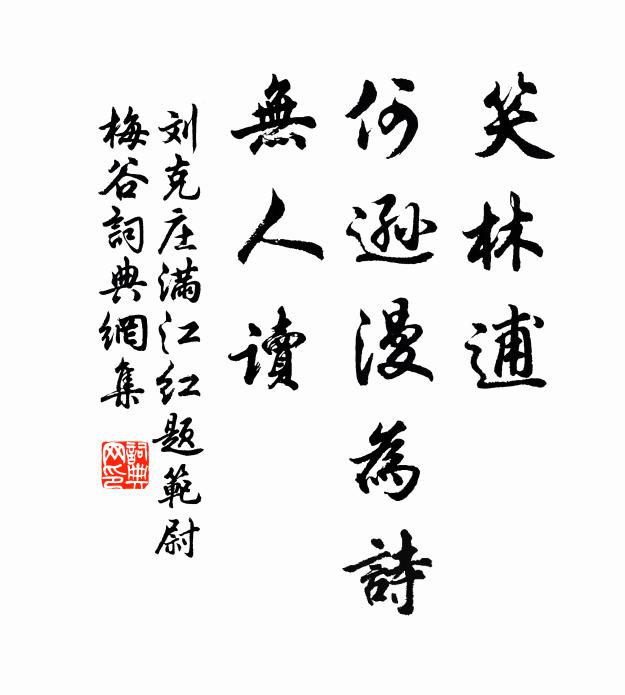 笑林逋
何遜漫為詩
無人读
刘克庄满江红题範尉
梅谷詞典網集
詞典网印